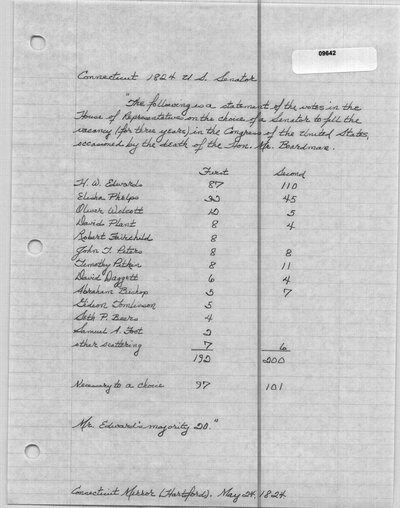 09642
Connecticut 1824 U.S. Senator
"The following is a statement of the votes in the
House of Representatives on the choice of a Senator to fill the
vacancy (for three years), in the Congress of the United States,
occasioned by the death of the Hon. Mr. Boardman.
First Second
H. W. Edwards 87 110
Elisha Phelps 32 45
Oliver Wolcott 10 5
David Plant 8 4
Robert Fairchild 8
John T. Peters 8 8
Timothy Pitkin 8 11
David Daggett 6 4
Abraham Bishop 5 7
Gideon Tomlinson 5
Seth P. Beers 4
Samuel A. Foot 2
other scattering 7 6
192 200
Necessary to a choice 97 101
Mr. Edward's majority 20."
Connecticut Mirror (Hartford). May 24, 1824